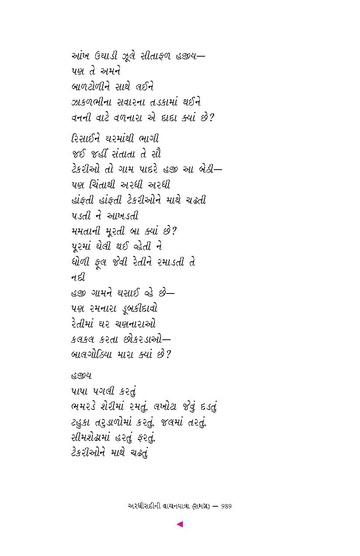 આંખ ઉઘાડી ઝૂલે સીતાફળ હજીય—
પણ તે અમને
બાળટોળીને સાથે લઈને
ઝાકળભીના સવારના તડકામાં થઈને
વનની વાટે વળનારા એ દાદા ક્યાં છે?
રિસાઈને ઘરમાંથી ભાગી
જઈ જહીં સંતાતા તે સૌ
ટેકરીઓ તો ગામ પાદરે હજી આ બેઠી—
પણ ચિંતાથી અરધી અરધી
હાંફતી હાંફતી ટેકરીઓને માથે ચઢતી
પડતી ને આખડતી
મમતાની મૂરતી બા ક્યાં છે?
પૂરમાં ઘેલી થઈ વ્હેતી ને
ધોળી ફૂલ જેવી રેતીને રમાડતી તે
નદી
હજી ગામને ઘસાઈ વ્હે છે—
પણ રમનારા ડૂબકીદાવો
રેતીમાં ઘર ચણનારાઓ
કલકલ કરતા છોકરડાઓ—
બાલગોઠિયા મારા ક્યાં છે?
હજીય
પાપા પગલી કરતું
ભમરડે શેરીમાં રમતું, લખોટા જેવું દડતું
ટહુકા તરુડાળોમાં કરતું, જલમાં તરતું,
સીમશેઢામાં હરતું ફરતું,
ટેકરીઓને માથે ચઢતું
અરધીસદીની વાચનયાત્રા (સમગ્ર) — 989